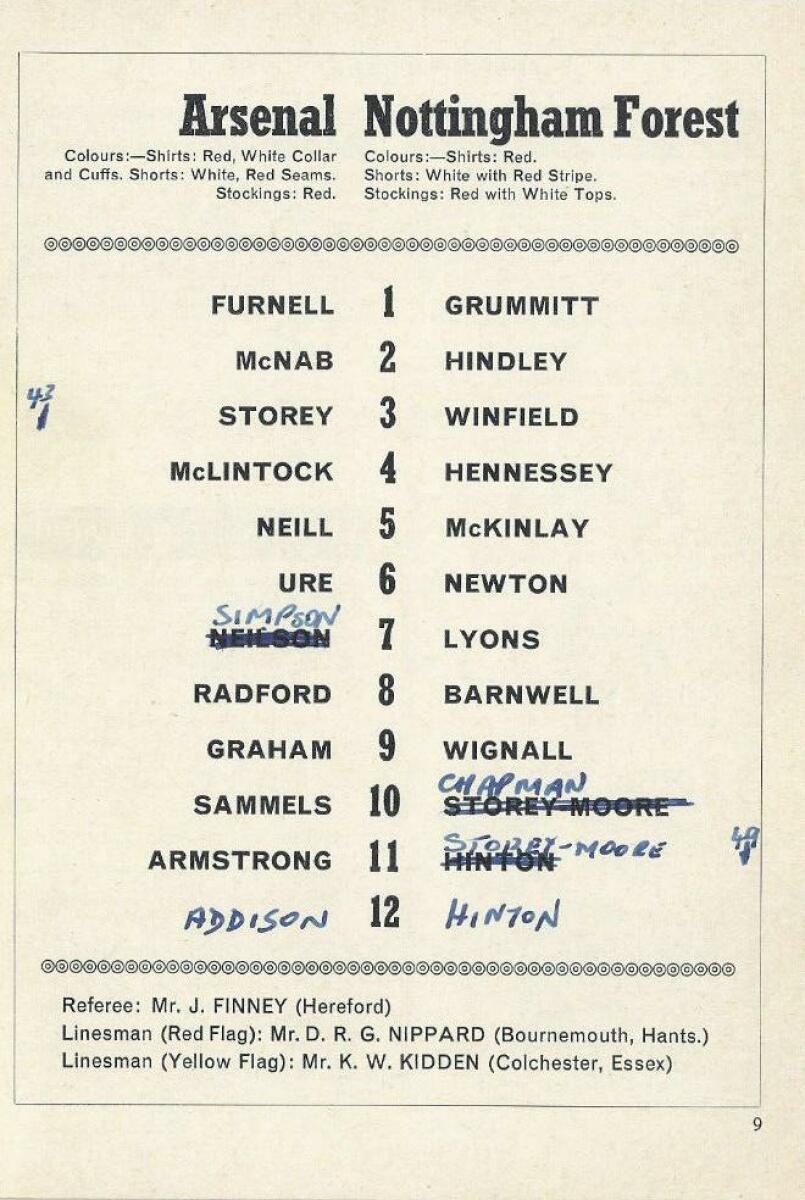 Arsenal Nottingham Forest
Colours:—Shirts: Red, White Collar
and Cuffs. Shorts: White, Red Seams.
Stockings: Red.
Colours:—Shirts: Red.
Shorts: White with Red Stripe.
Stockings: Red with White Tops.
FURNELL 1 GRUMMITT
McNAB 2 HINDLEY
43
1
STOREY 3 WINFIELD
McLINTOCK 4 HENNESSEY
NEILL 5 McKINLAY
URE 6 NEWTON
SIMPSON
NEILSON 7 LYONS
RADFORD 8 BARNWELL
GRAHAM 9 WIGNALL
CHAPMAN
SAMMELS 10 STOREY-MOORE
STOREY-MOORE 49
1
ARMSTRONG 11 HINTON
ADDISON 12 HINTON
Referee: Mr. J. FINNEY (Hereford)
Linesman (Red Flag): Mr. D. R. G. NIPPARD (Bournemouth, Hants.)
Linesman (Yellow Flag): Mr. K. W. KIDDEN (Colchester, Essex)
9